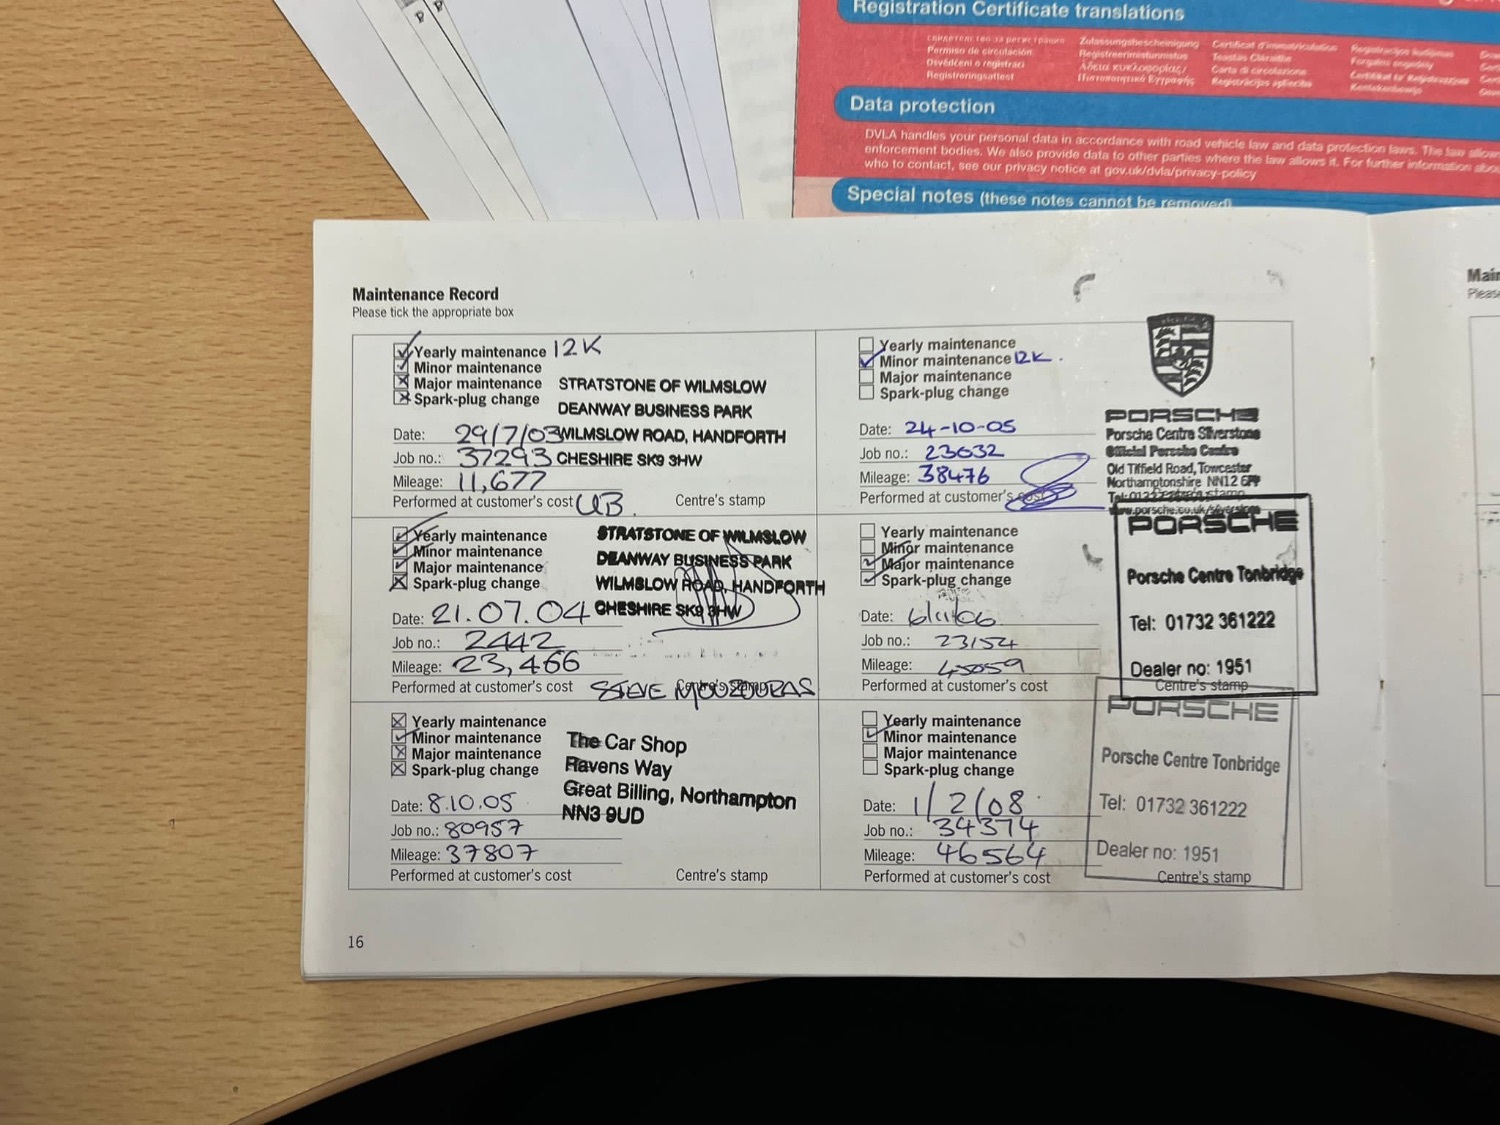 Registration Certificate translations
Permiso de circulación
Osvědčení o registraci
Registreringsattest
Zulassungsbescheinigung
Registreerimistunnistus
Άδεια κυκλοφορίας/
Πιστοποιητικό Εγγραφής
Certificat d'immatriculation
Teastas Cláraithe
Carta di circolazione
Data protection
DVLA handles your personal data in accordance with road vehicle law and data protection laws. The law allows
enforcement bodies. We also provide data to other parties where the law allows it. For further information abou
who to contact, see our privacy notice at gov.uk/dvla/privacy-policy
Special notes (these notes cannot be removed)
Maintenance Record
Please tick the appropriate box
Yearly maintenance 12K
Minor maintenance
Major maintenance
Spark-plug change
STRATSTONE OF WILMSLOW
DEANWAY BUSINESS PARK
WILMSLOW ROAD, HANDFORTH
CHESHIRE SK9 3HW
Date: 29/7/03
Job no.: 37293
Mileage: 11,677
Performed at customer's cost UB
Centre's stamp
Yearly maintenance
Minor maintenance
Major maintenance
Spark-plug change
STRATSTONE OF WILMSLOW
DEANWAY BUSINESS PARK
WILMSLOW ROAD, HANDFORTH
CHESHIRE SK9 3HW
Date: 21.07.04
Job no.: 2442
Mileage: 23,466
Performed at customer's cost
Centre's stamp
STEVE
Yearly maintenance
Minor maintenance
Major maintenance
Spark-plug change
The Car Shop
Ravens Way
Great Billing, Northampton
NN3 9UD
Date: 8.10.05
Job no.: 80957
Mileage: 37807
Performed at customer's cost
Centre's stamp
16
Yearly maintenance
Minor maintenance 12K.
Major maintenance
Spark-plug change
PORSCHE
Porsche Centre Silverstone
Official Porsche Centre
Old Tiffield Road, Towcester
Northamptonshire NN12 6PF
www.porsche.co.uk/silverstone
Date: 24-10-05
Job no.: 23632
Mileage: 38476
Performed at customer's cost
Yearly maintenance
Minor maintenance
Major maintenance
Spark-plug change
PORSCHE
Porsche Centre Tonbridge
Tel: 01732 361222
Dealer no: 1951
Date: 6/11/06
Job no.: 23154
Mileage: 45059
Performed at customer's cost
Centre's stamp
Yearly maintenance
Minor maintenance
Major maintenance
Spark-plug change
PORSCHE
Porsche Centre Tonbridge
Tel: 01732 361222
Dealer no: 1951
Date: 1/2/08
Job no.: 34374
Mileage: 46564
Performed at customer's cost
Centre's stamp
Main
Please